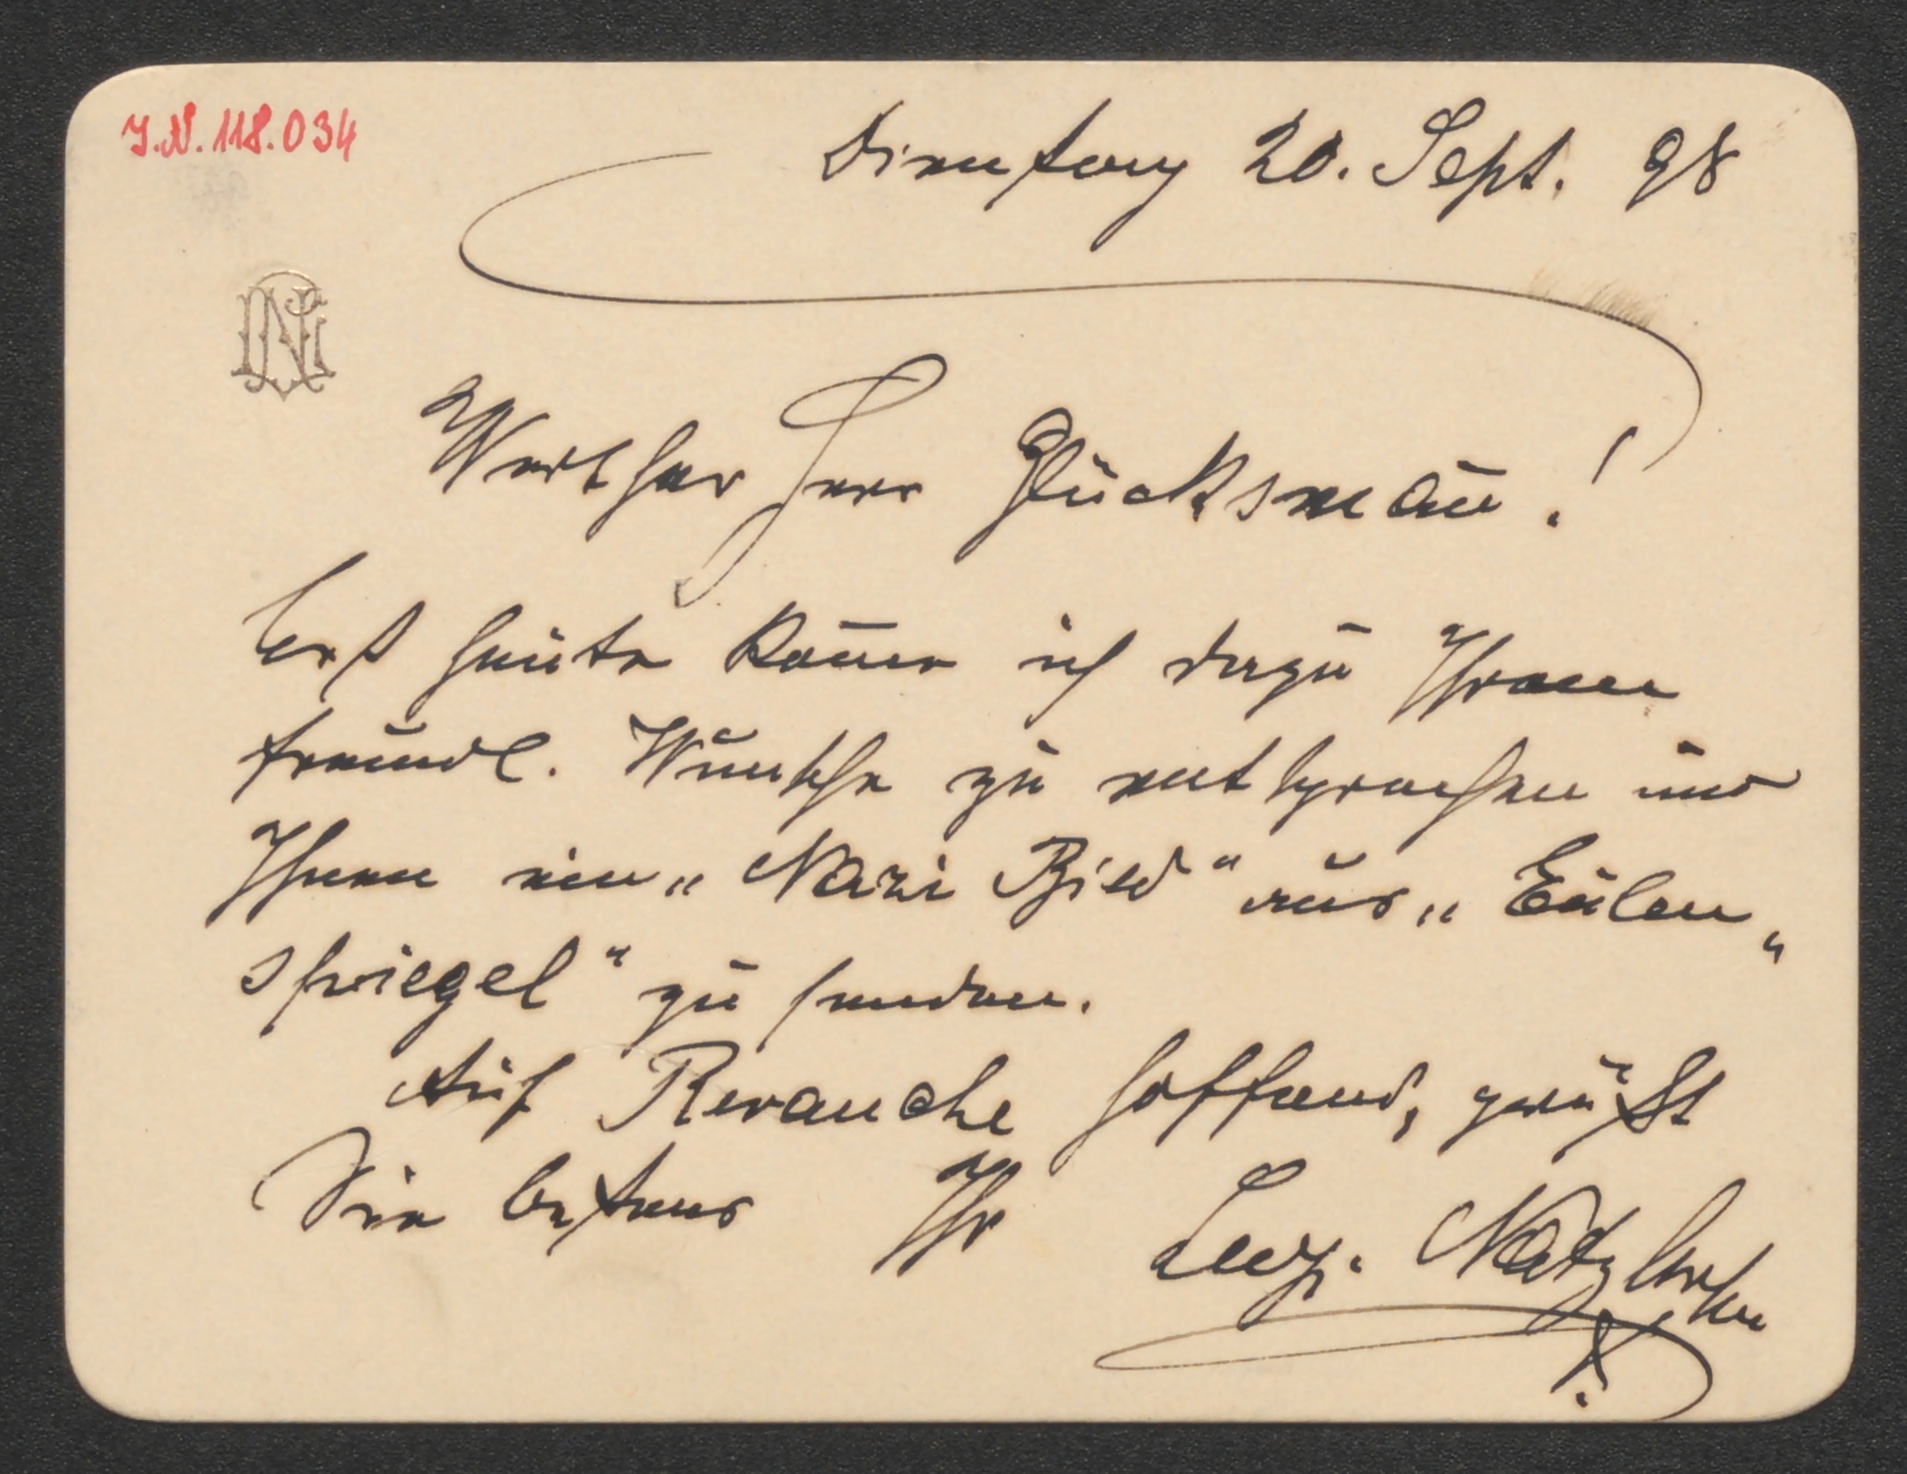 I.N. 118.034
Dienstag 20. Sept. 98
Werther Herr Glücksman̅!
Erst heute kom̅e ich dazu Ihrem
freundl. Wunsche zu entsprechen und
Ihnen ein „Nazi Bild“ aus „Eulen„
spiegel“ zu senden.
Auf Revanche hoffend, grüßt
Sie bestens Ihr Leop. Natzler